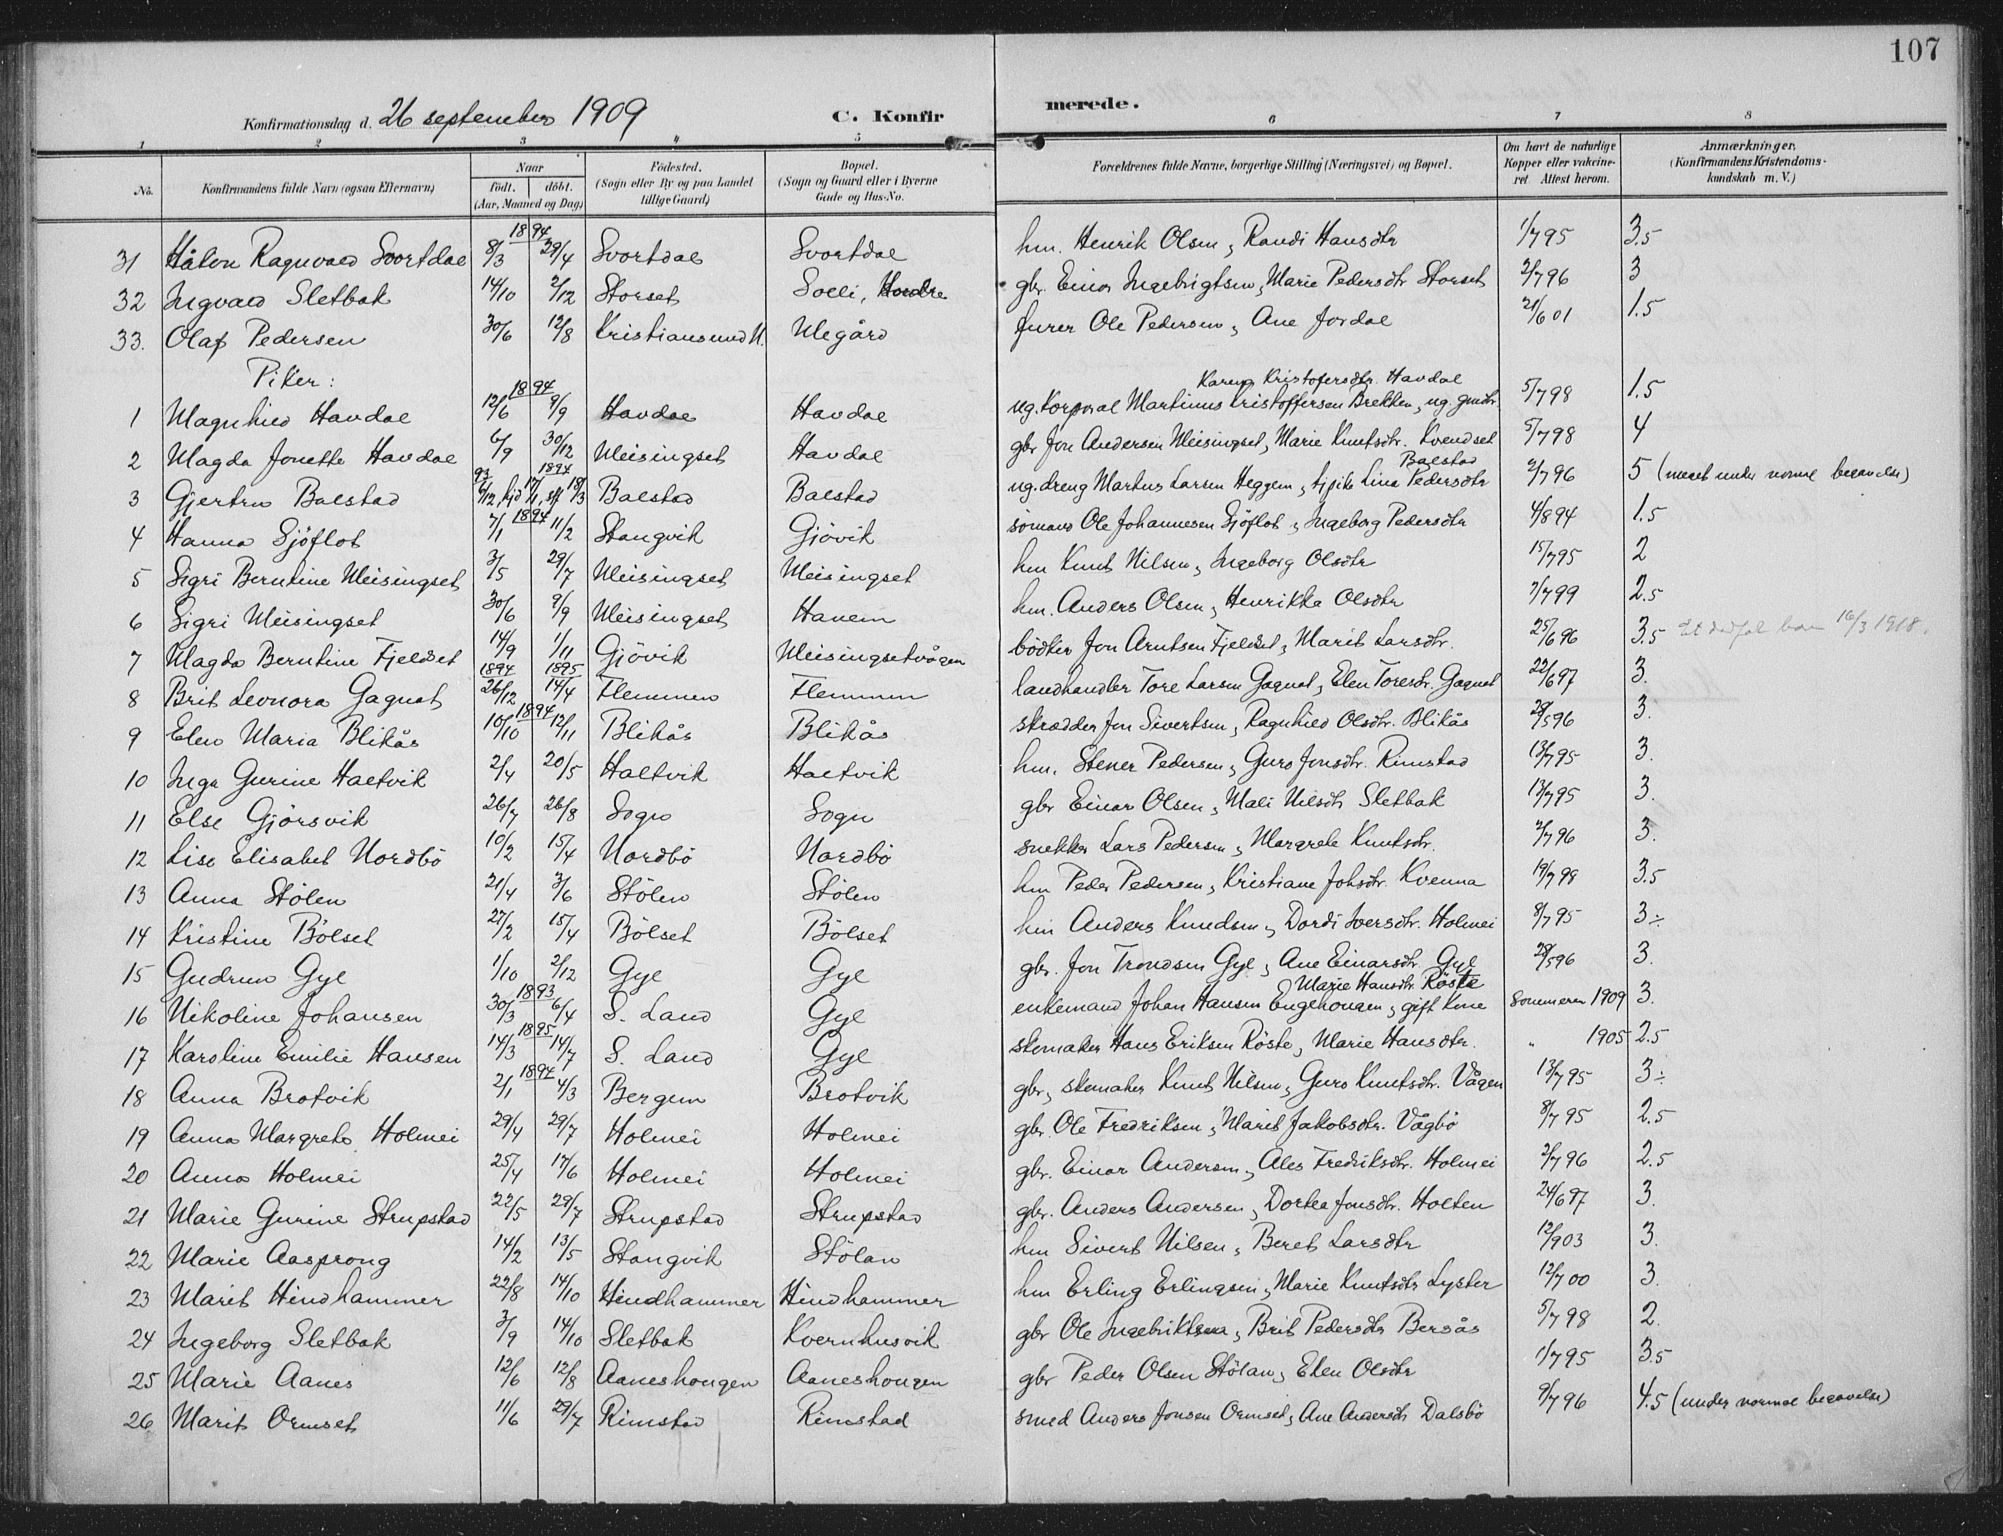 107
Konfirmationsdag d. 26 september 1909 C. Konfirmerede.
1 2 3 4 5 6 7 8
No. Konfirmandens fulde Navn (ogsaa Efternavn) Naar födt. döbt. (Aar, Maaned og Dag) Födested. (Sogn eller By og paa Landet tillige Gaard) Bopæl. (Sogn og Gaard eller i Byerne Gade og Hus-No. Forældrenes fulde Navne, borgerlige Stilling (Næringsvei) og Bopæl. Om havt de naturlige Kopper eller vakcineret. Attest herom. Anmærkninger. (Konfirmandens Kristendomskundskab m. V.)
1894
31 Håkon Ragnvald Svortdal 8/3 29/4 Svortdal Svortdal hm. Henrik Olsen, Randi Hansdtr 1/7 95 3.5
32 Ingvald Sletbak 14/10 2/12 Storset Solli, Hondre gbr. Einar Ingebrigtsen, Marie Pedersdtr Storset 2/7 96 3
33. Olaf Pedersen 30/6 12/8 Kristiansund N. Ulegård furer Ole Pedersen, Ane Jordal 21/6 01 1.5
Piker:
1894 Karen Kristofersdtr. Havdal
1 Magnhild Havdal 12/6 9/9 Havdal Havdal ug. korporal Martinus Kristoffersen Brekken, ug. gmdtr. 5/7 98 1.5
2 Magda Jonette Havdal 6/9 30/12 Meisingset Havdal gbr Jon Andersen Meisingset, Marie Knutsdtr. Kvendset 5/7 98 4
93 1894 Balstad
3 Gjertru Balstad 6/12 hjd 17/1 stf 18/3 Balstad Balstad ug. dreng Martus Larsen Heggem, tjpike Lina Pedersdtr 2/7 96 5 (meget under normal begavelse)
1894
4 Hanna Sjöflot 7/1 11/2 Stangvik Gjövik sömand Ole Johannesen Sjöflot, Ingeborg Pedersdtr 4/8 94 1.5
5 Sigri Berntine Meisingset 3/5 29/7 Meisingset Meisingset hm Knut Nilsen, Ingeborg Olsdtr 15/7 95 2
6 Sigri Meisingset 30/6 9/9 Meisingset Hanem hm. Anders Olsen, Henrikke Olsdtr 7/7 99 2.5
7 Magda Berntine Fjeldset 14/9 1/11 Gjövik Meisingsetvågen bödker Jon Arntsen Fjeldset, Marit Larsdtr. 25/6 96 3.5 16/3 1918.
1894 1895
8 Brit Leonora Gagnat 26/12 14/4 Flemmen Flemmen landhandler Tore Larsen Gagnat, Elen Toresdtr. Gagnat 22/6 97 3.
1894
9 Elen Maria Blikås 10/10 12/11 Blikås Blikås skrædder Jon Sivertsen, Ragnhild Olsdtr. Blikås 28/5 96 3.
10 Inga Gurine Haltvik 2/4 20/5 Haltvik Haltvik hm. Stener Pedersen, Guro Jonsdtr. Rimstad 13/7 95 3.
11 Else Gjörsvik 26/7 26/8 Sogn Sogn gbr Einar Olsen, Mali Nilsdtr Sletbak 13/7 95 3.
12 Lise Elisabet Nordbö 10/2 15/4 Nordbö Nordbö snekker Lars Pedersen, Margrete Knutsdtr. 2/7 96 3.
13 Anna Stölen 21/4 3/6 Stölen Stölen hm Peder Pedersen, Kristiane Johsdtr. Kvenna 19/7 98 3.5
14 Kristine Bölset 27/2 15/4 Bölset Bölset hm Anders Knudsen, Dordi Iversdtr. Holmei 8/7 95 3÷
15 Gudrun Gyl 1/10 2/12 Gyl Gyl gbr. Jon Trondsen Gyl, Ane Einarsdtr. Gyl 28/5 96 3.
1893 Marie Hansdtr. Röste
16 Nikoline Johansen 30/3 6/4 S. Land Gyl enkemand Johan Hansen Engehougen, gift kone Sommeren 1909 3.
1895
17 Karoline Emilie Hansen 14/3 14/7 S. Land Gyl skomaker Hans Eriksen Röste, Marie Hansdtr. " 1905 2.5
1894
18 Anna Brotvik 2/1 4/3 Bergem Brotvik gbr, skomaker Knut Nilsen, Guro Knutsdtr. Vågen 13/7 95 3÷
19 Anna Margrete Holmei 29/4 29/7 Holmei Holmei gbr. Ole Fredriksen, Marit Jakobsdtr. Vågbö 8/7 95 2.5
20 Anna Holmei 25/4 17/6 Holmei Holmei gbr. Einar Andersen, Ales Fredriksdtr. Holmei 2/7 96 2.5
21 Marie Gurine Strupstad 22/5 29/7 Strupstad Strupstad gbr. Anders Andersen, Dortea Jonsdtr. Holten 24/6 97 3.
22 Marie Aasprong 14/2 13/5 Stangvik Stölan hm Sivert Nilsen, Beret Larsdtr 12/9 03 3.
23 Marit Hindhammer 22/8 14/10 Hindhammer Hindhammer hm Erling Erlingsen, Marie Knutsdtr Lyster 12/7 00 3.
24 Ingeborg Sletbak 3/9 14/10 Sletbak Kvernhusvik gbr Ole Ingebriktsen, Brit Pedersdtr Bersås 5/7 98 2.
25 Marie Aanes 12/6 12/8 Aaneshougen Aaneshougen gbr Peder Olsen Stölan, Elen Olsdtr 1/7 95 3.5
26 Marit Ormset 11/6 29/7 Rimstad Rimstad smed Anders Jonsen Ormset, Ane Andersdtr Dalsbö 9/7 96 4.5 (under normal begavelse)